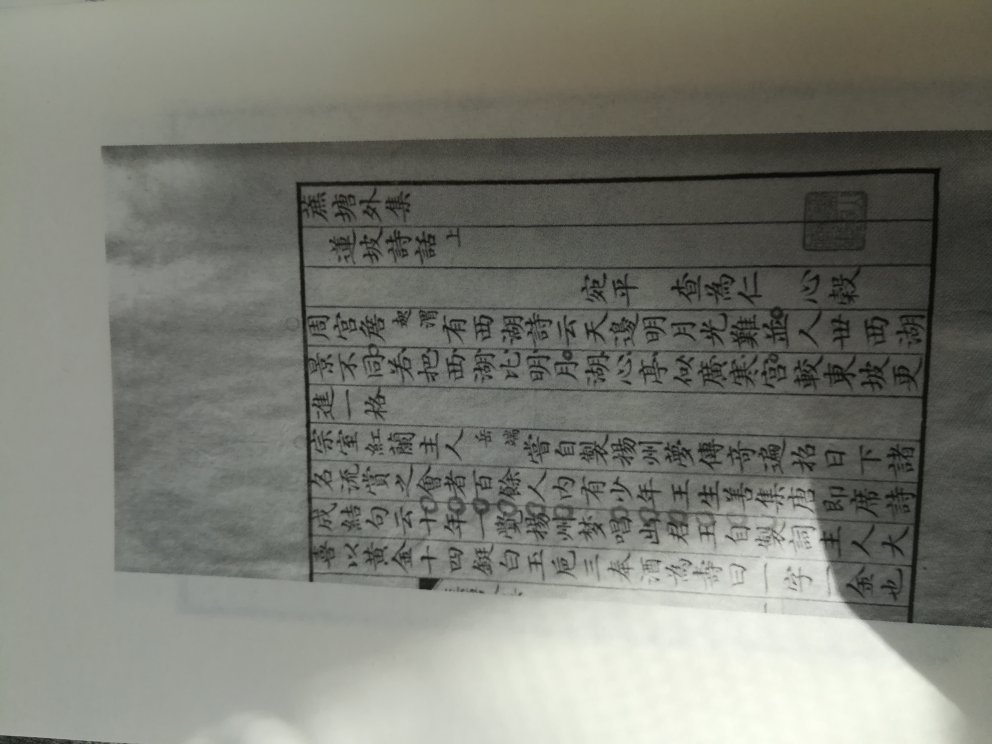 蔗塘外集
蓮坡詩話上
宛平 查為仁 心穀
周宮詹起渭有西湖詩云天邊明月光難並人世西湖
景不同若把西湖比明月湖心亭似廣寒宮較東坡更
進一格
宗室紅蘭主人岳端嘗自製揚州夢傳奇遍招日下諸
名流賞之會者百餘人內有少年王生善集唐即席詩
成結句云十年一覺揚州梦唱出君王自製詞主人大
喜以黃金十四鋌白玉巵三奉酒為壽曰一字一金也